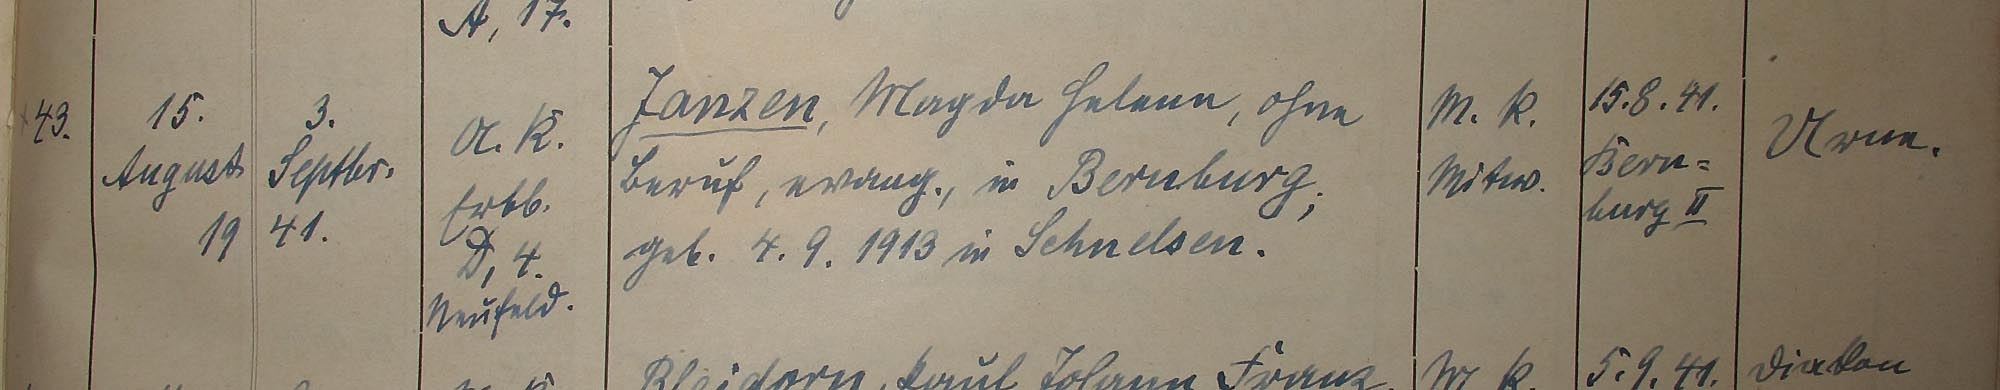 A, 17.
43.
15.
August
19
3.
Septbr.
41.
A. K.
Erbb.
D, 4.
Neufeld.
Janzen, Magda Helene, ohne
Beruf, evang., in Bernburg,
geb. 4. 9. 1913 in Schnelsen.
M. K.
Mitw.
15.8.41.
Bern=
burg II
Urne.
Paul Johann Franz
5.9.41.
Diakon